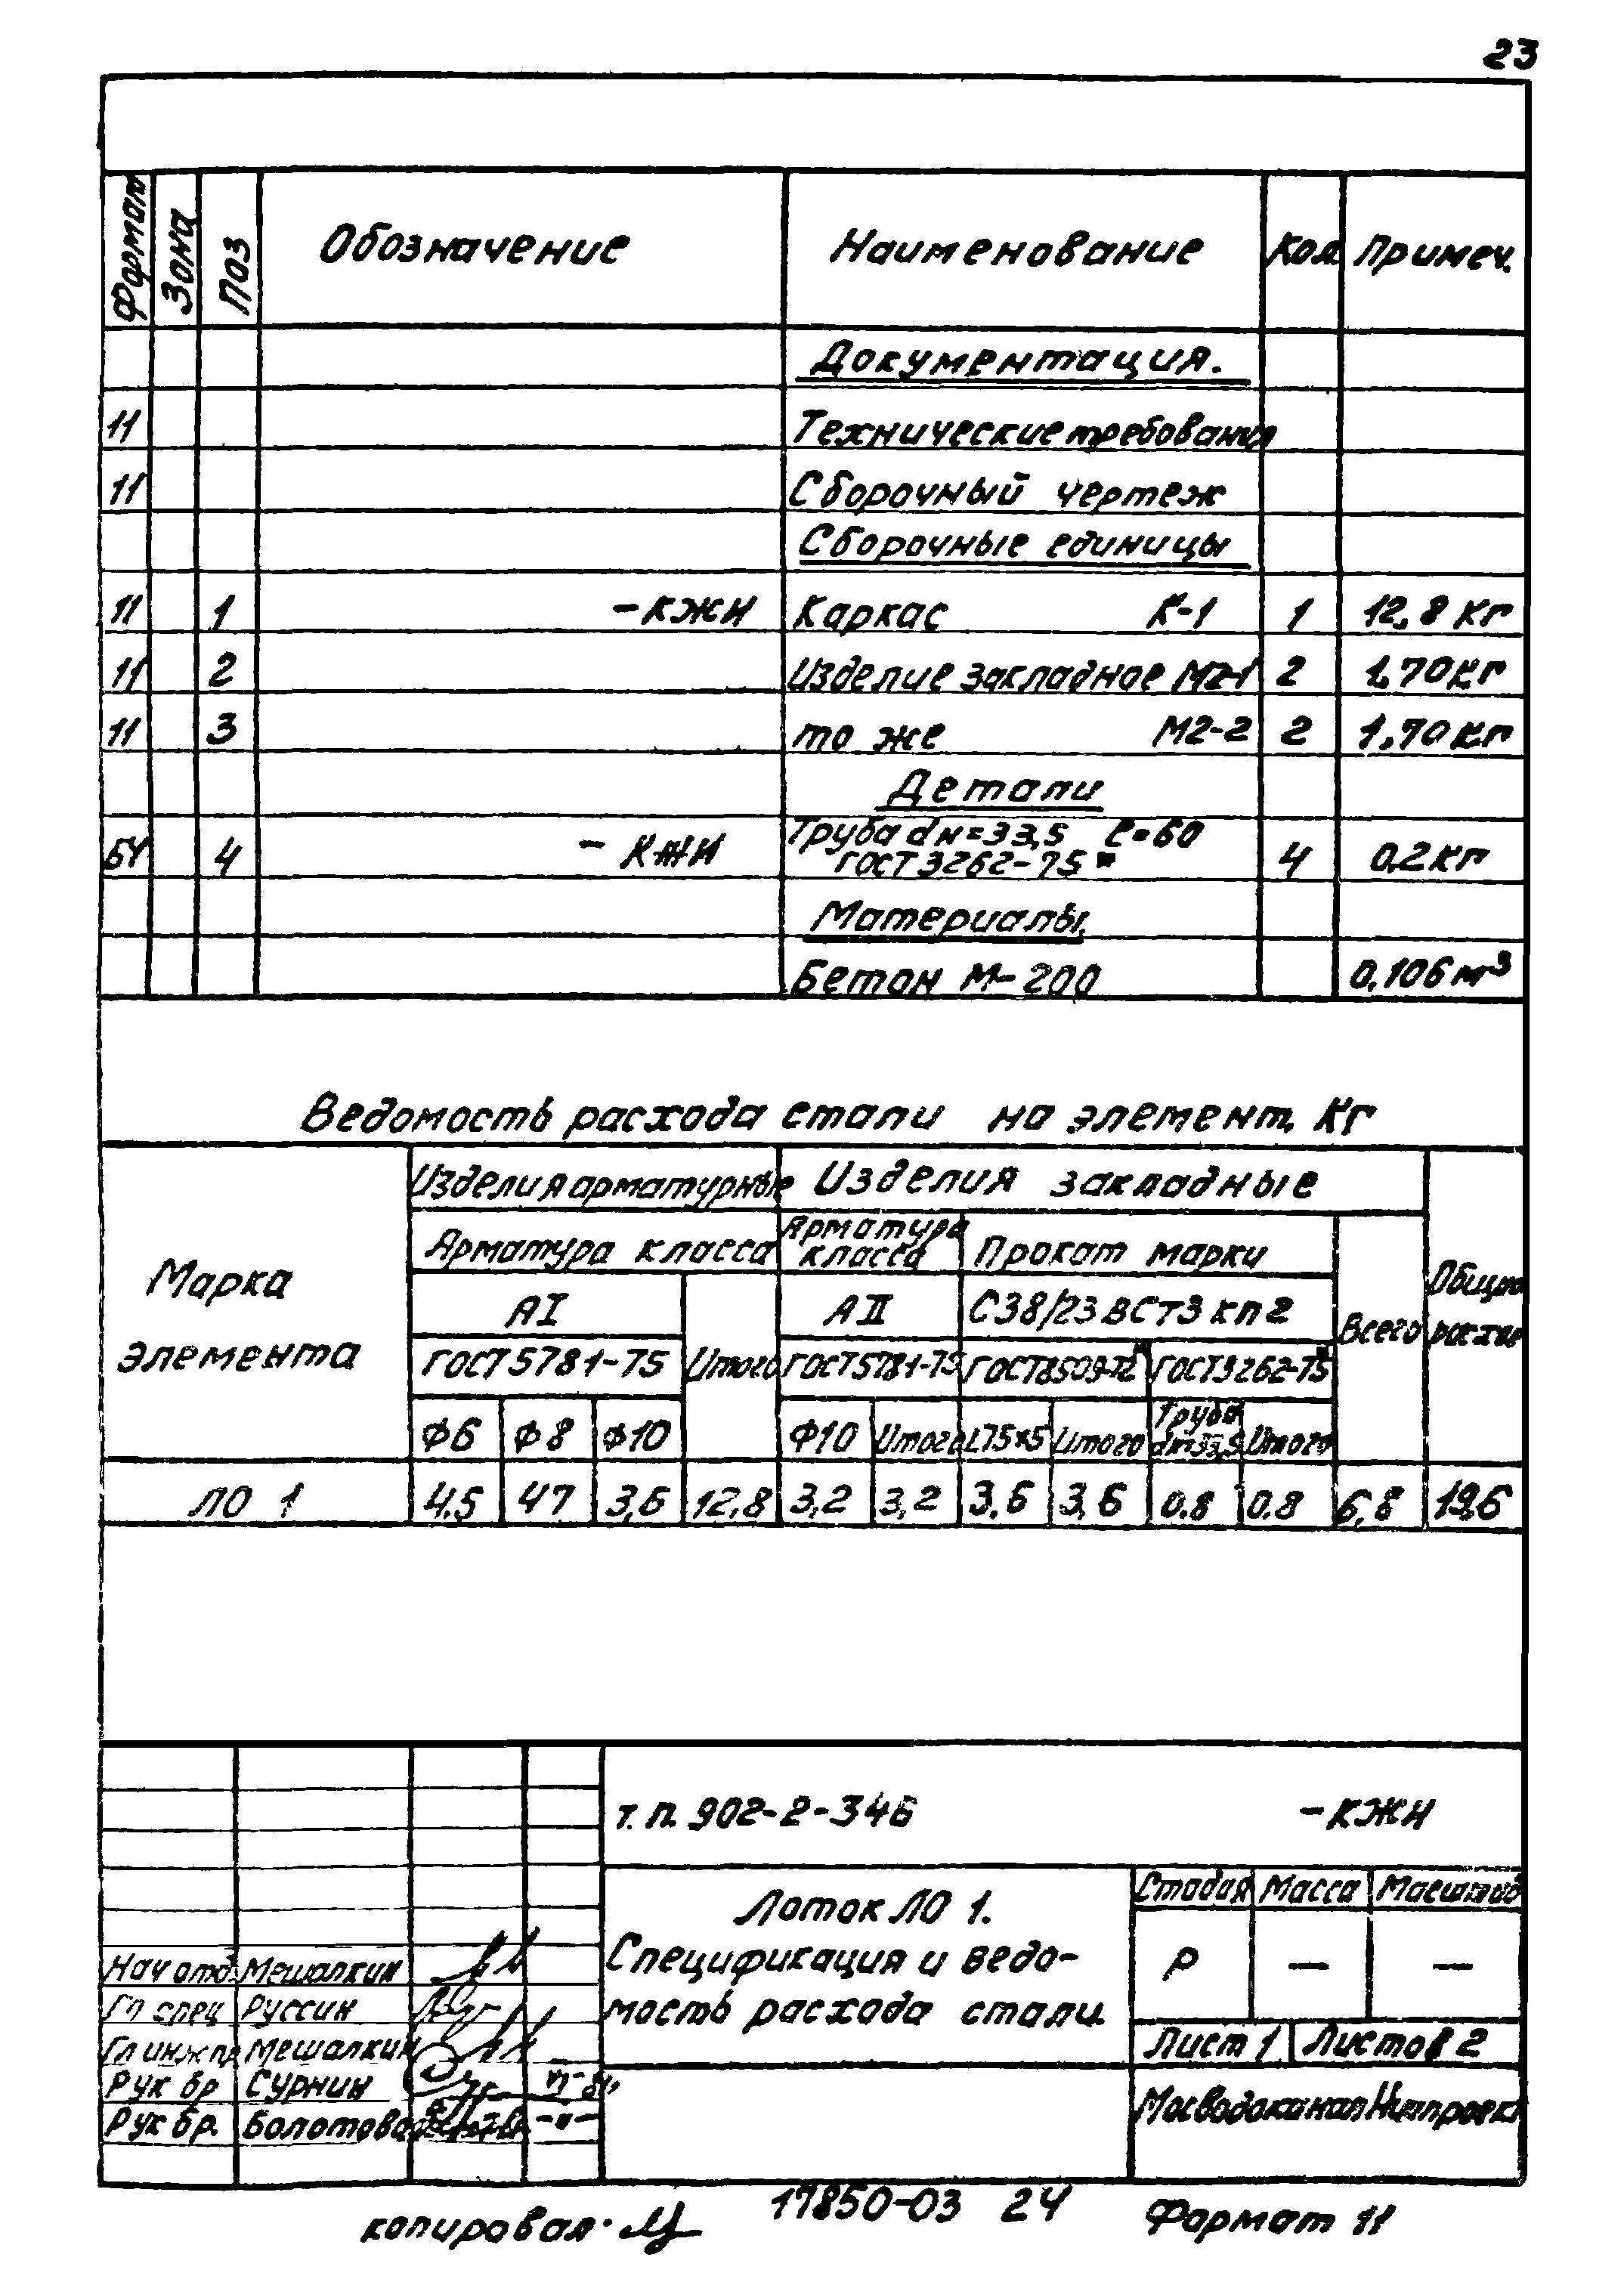 23
Формат Зона Поз Обозначение Наименование Кол Примеч.
Документация.
11 Технические требования
11 Сборочный чертеж
Сборочные единицы
11 1 -КЖИ Каркас К-1 1 12,8 кг
11 2 Изделие закладное М2-1 2 1,70кг
11 3 то же М2-2 2 1,70кг
Детали
БЧ 4 - КЖИ Труба dн=33,5 ℓ=60
ГОСТ 3262-75* 4 0,2кг
Материалы.
Бетон М-200 0,106 м³
Ведомость расхода стали на элемент, кг
Марка элемента
Изделия арматурные Изделия закладные
Арматура класса Арматура класса Прокат марки Всего Общий расход
АI Итого АII С38/23 ВСт3 кп2
ГОСТ 5781-75 ГОСТ5781-75 ГОСТ8509-72* ГОСТ3262-75*
Ф6 Ф8 Ф10 Ф10 Итого L75х5 Итого Труба dн=33,5 Итого
ЛО 1 4.5 47 3,6 12,8 3,2 3,2 3,6 3,6 0.8 0.8 6,8 19,6
т.п. 902-2-346 -КЖИ
Лоток ЛО 1.
Спецификация и ведо-
мость расхода стали.
Стадия Масса Масштаб
Р — —
Лист 1 Листов 2
МосводоканалНиипроект
Нач отд. Мешалкин
Гл спец Руссин
Гл инж пр Мешалкин
Рук бр Сурнин
Рук бр. Болотова -"-
копировал.
17850-03 24
Формат 11